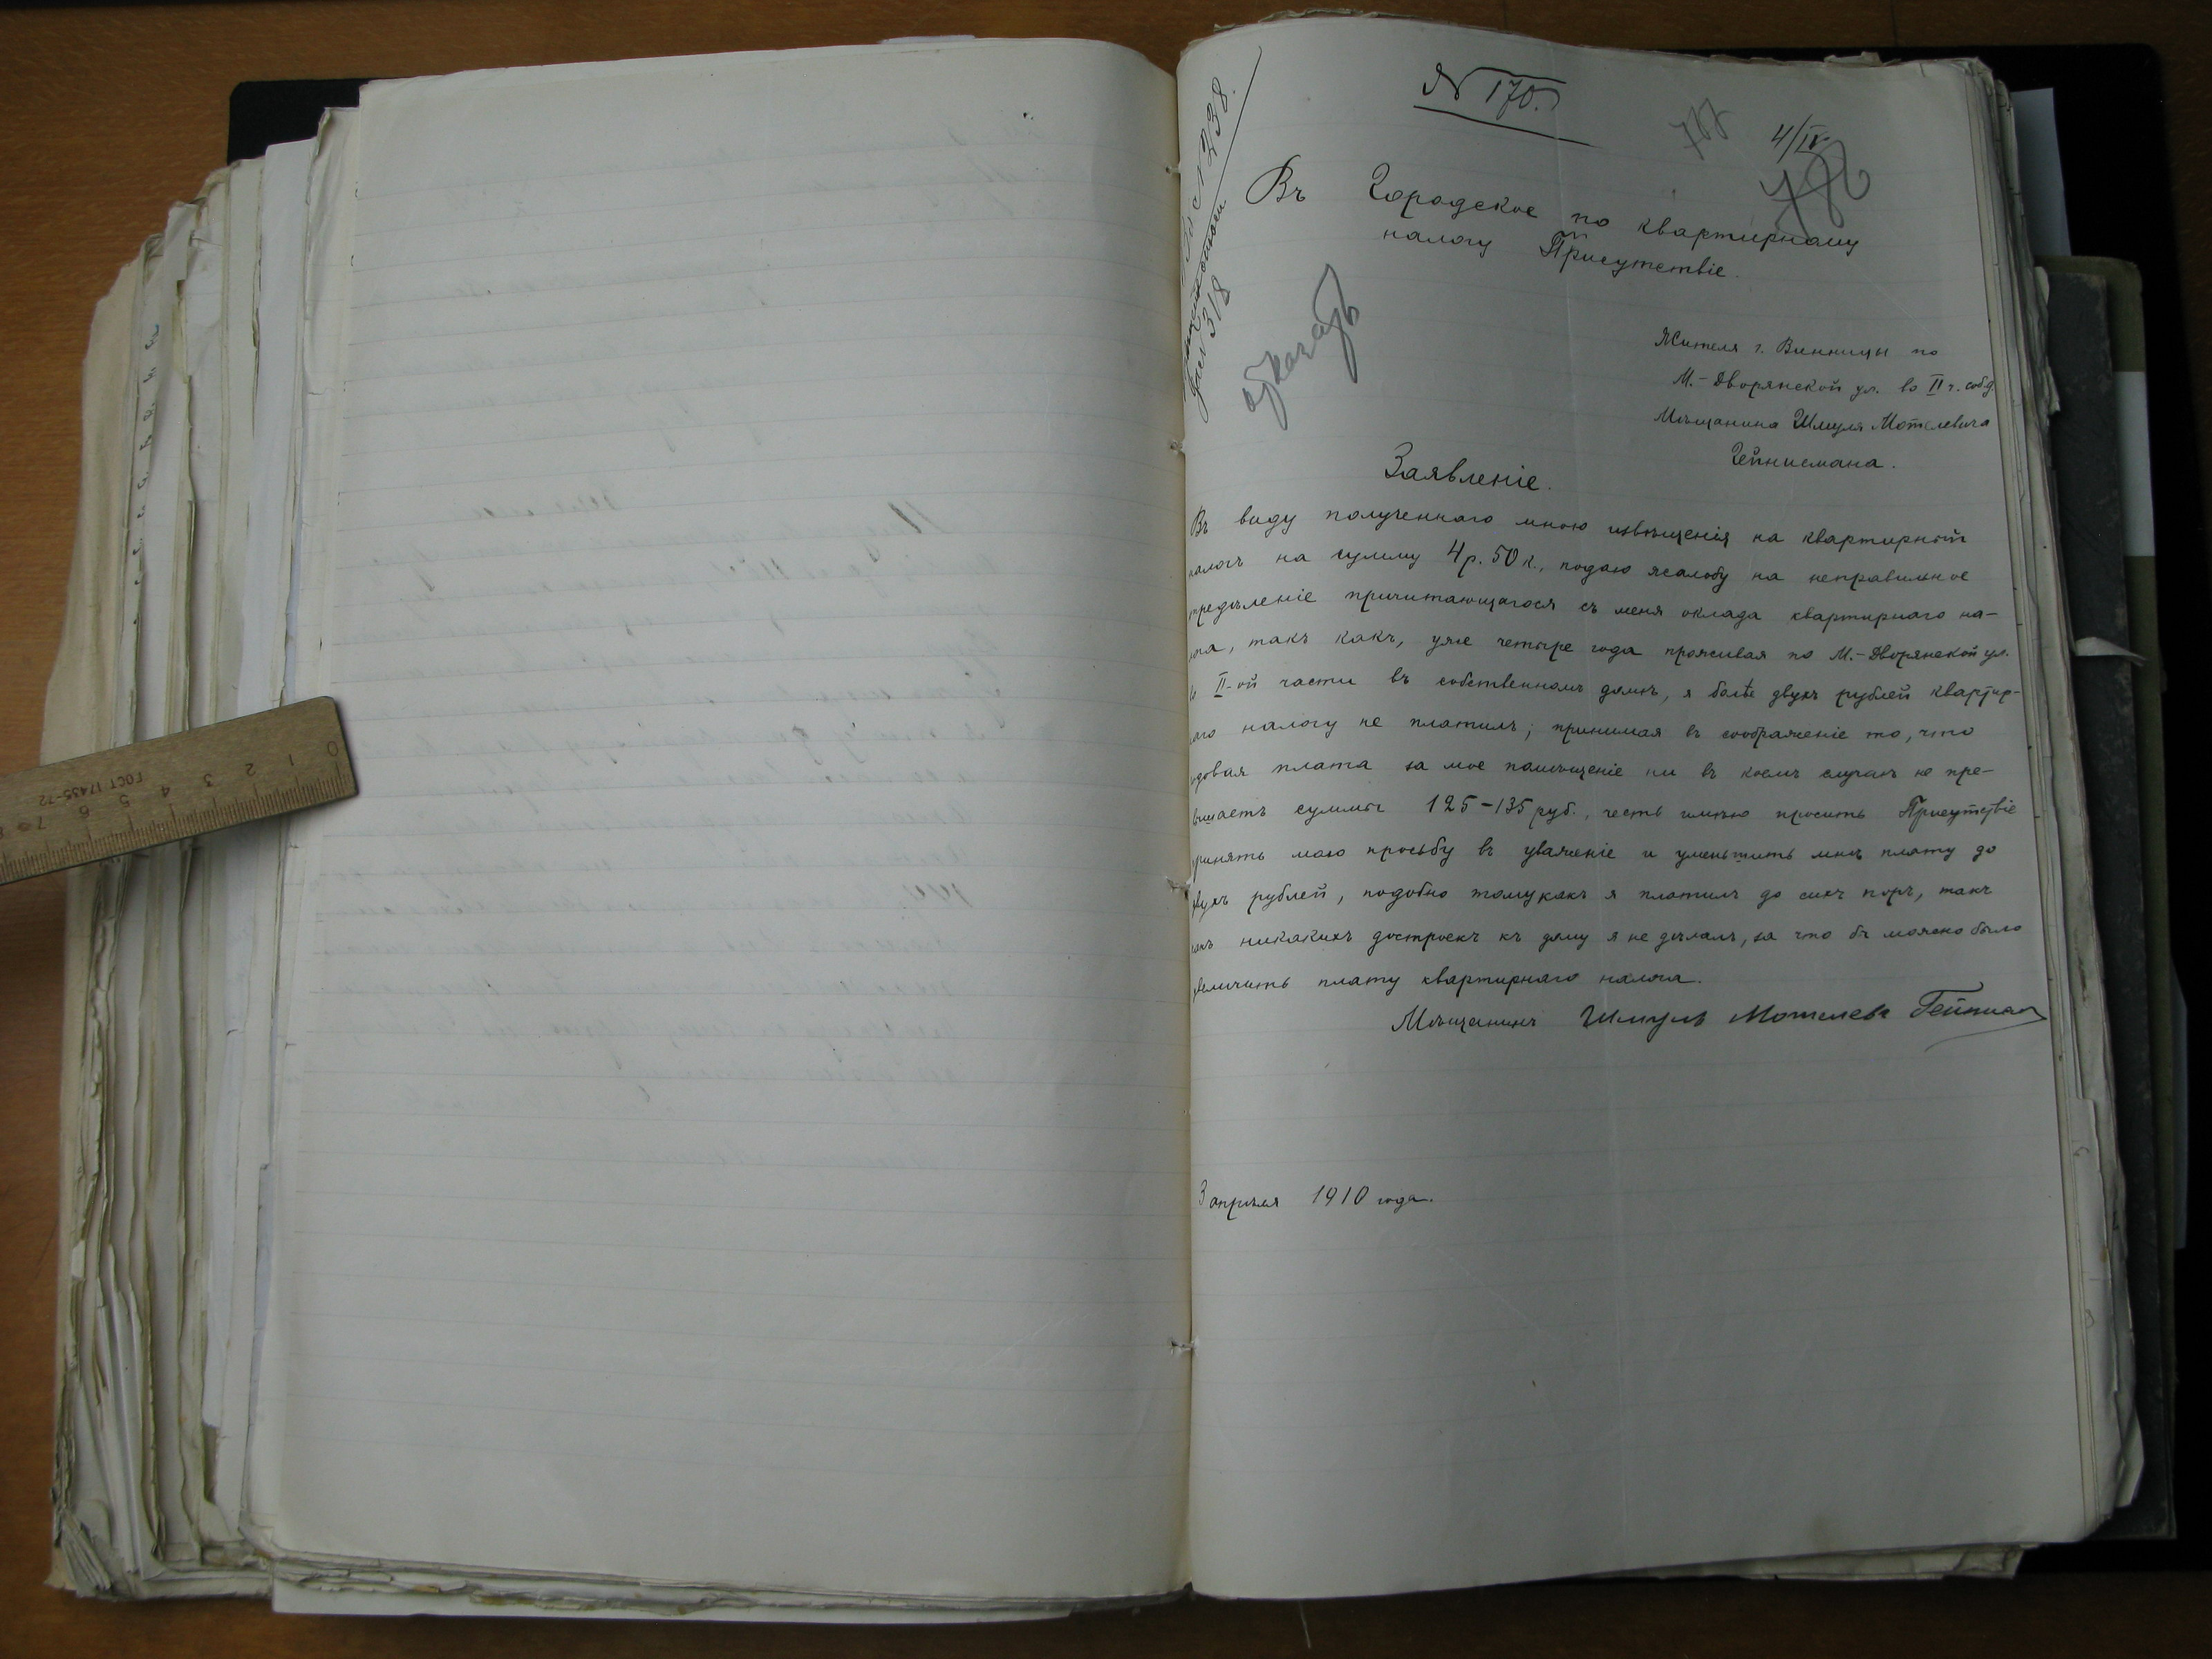 № 170.
4/IV
Въ Городское по квартирному
налогу Присутствіе.
отказать
№ 238.
318
Жителя г. Винницы по
М.-Дворянской ул. во II ч. соб.д.
Мѣщанина Шмуля Мотелевича
Гейнисмана.
Заявленіе.
Въ виду полученнаго мною извѣщенія на квартирный
налогъ на сумму 4 р. 50 к., подаю жалобу на неправильное
опредѣленіе причитающагося съ меня оклада квартирнаго на-
лога, такъ какъ, уже четыре года проживая по М.-Дворянской ул.
во II-ой части въ собственномъ домѣ, я болѣе двухъ рублей квартир-
наго налогу не платилъ; принимая въ соображеніе то, что
годовая плата за мое помѣщеніе ни въ коемъ случаѣ не пре-
вышаетъ суммы 125-135 руб., честь имѣю просить Присутствіе
принять мою просьбу въ уваженіе и уменьшить мнѣ плату до
двухъ рублей, подобно тому какъ я платилъ до сихъ поръ, такъ
какъ никакихъ достроекъ къ дому я не дѣлалъ, за что бъ можно было
увеличить плату квартирнаго налога.
Мѣщанинъ Шмуль Мотелевъ
3 апрѣля 1910 года.
0 1 2 3 4 5 6 7
ГОСТ 17435-72